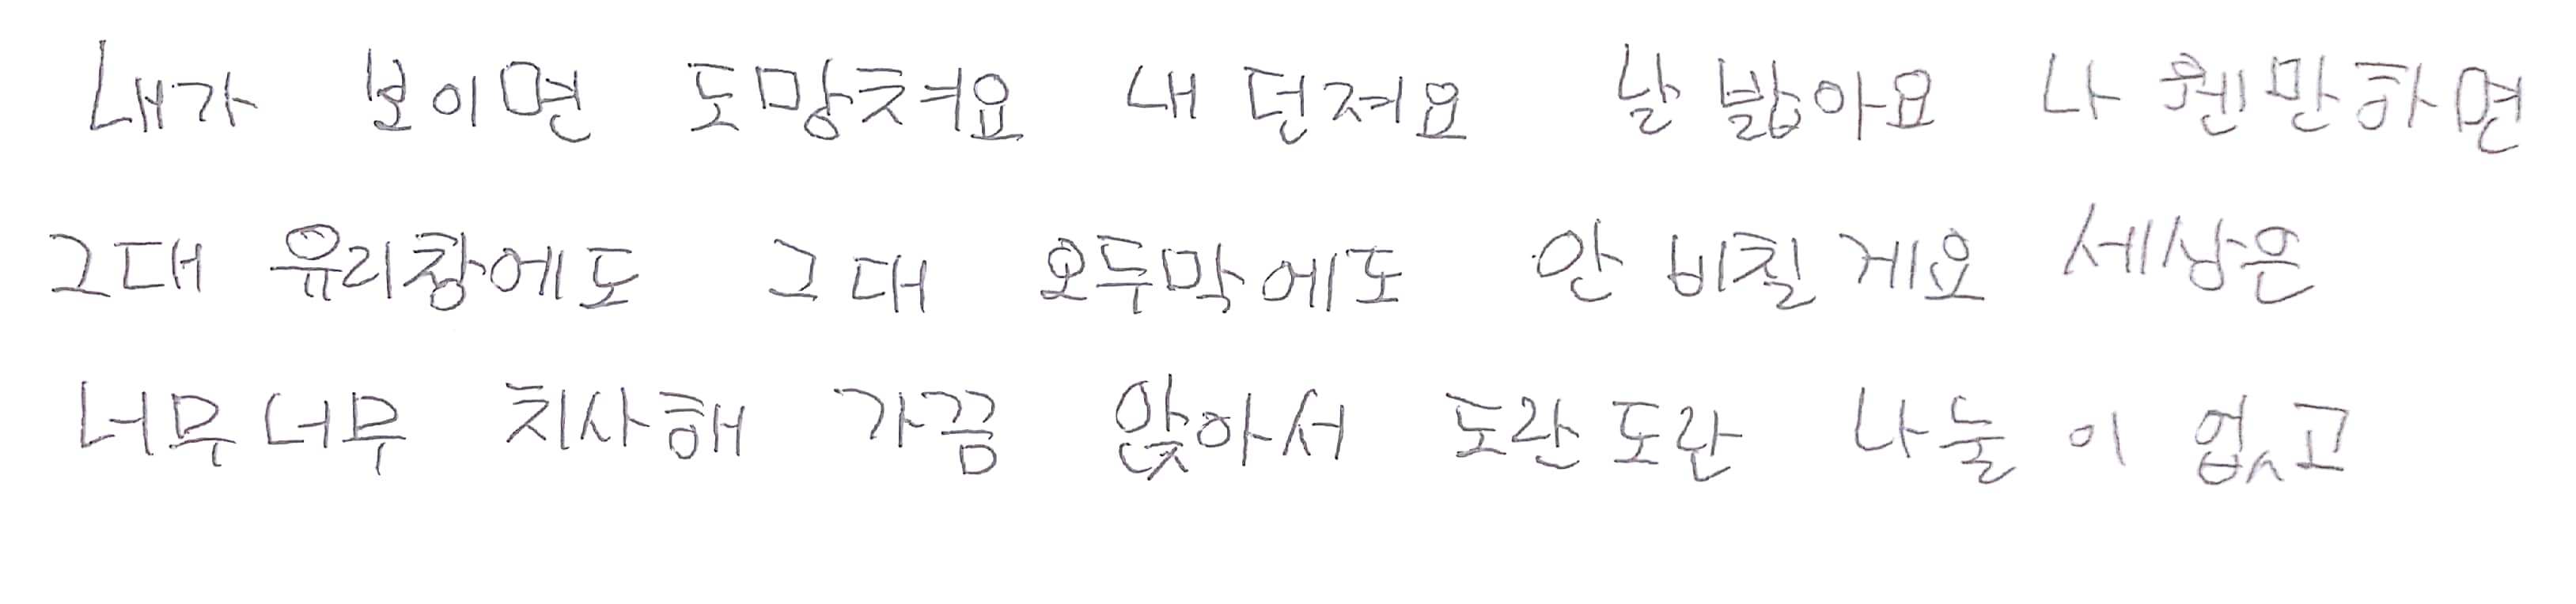 내가 보이면 도망쳐요 내 던져요 날 밟아요 나 웬만하면
그대 유리창에도 그대 오두막에도 안 비칠게요 세상은
너무너무 치사해 가끔 앉아서 도란도란 나눌 이 없고